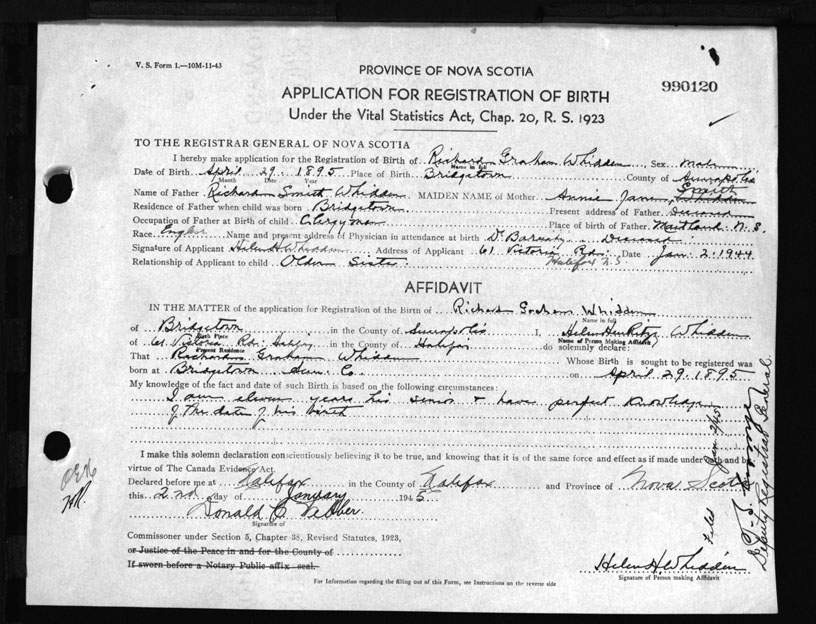 V. S. Form 1.—10M-11-43
PROVINCE OF NOVA SCOTIA
990120
APPLICATION FOR REGISTRATION OF BIRTH
Under the Vital Statistics Act, Chap. 20, R. S. 1923
TO THE REGISTRAR GENERAL OF NOVA SCOTIA
I hereby make application for the Registration of Birth of Richard Graham Whidden, Sex male
Name in full
Date of Birth April 29 1895 Place of Birth Bridgetown County of Annapolis
Month Date Year
Smith
Name of Father Richard Smith Whidden MAIDEN NAME of Mother Annie Jane Whidden
Residence of Father when child was born Bridgetown Present address of Father Deceased
Occupation of Father at Birth of child Clergyman Place of birth of Father Maitland N. S.
Race English Name and present address of Physician in attendance at birth Dr Barnaby Deceased
Signature of Applicant Helen H. Whidden Address of Applicant 61 Victoria Rd. Date Jan. 2. 1944
Relationship of Applicant to child Older Sister Halifax N.S.
AFFIDAVIT
IN THE MATTER of the application for Registration of the Birth of Richard Graham Whidden
Name in full
of Bridgetown in the County of Annapolis I, Helen Whidden
Birth Place Name of Person Making Affidavit
of 61 Victoria Rd. Halifax in the County of Halifax do solemnly declare:
Present Residence
That Richard Graham Whidden Whose Birth is sought to be registered was
born at Bridgetown Ann. Co. on April 29. 1895
My knowledge of the fact and date of such Birth is based on the following circumstances:
I am eleven years his senior & have perfect knowledge
of the date of his birth
I make this solemn declaration conscientiously believing it to be true, and knowing that it is of the same force and effect as if made under oath and by
virtue of The Canada Evidence Act.
Declared before me at Halifax in the County of Halifax and Province of Nova Scotia
this 2nd day of January 1945
Donald C.
Signature of
Commissioner under Section 5, Chapter 38, Revised Statutes, 1923,
or Justice of the Peace in and for the County of
If sworn before a Notary Public affix seal.
Helen H. Whidden
Signature of Person making Affidavit
For Information regarding the filling out of this Form, see Instructions on the reverse side
Filed Jan 2/45
Deputy Registrar General